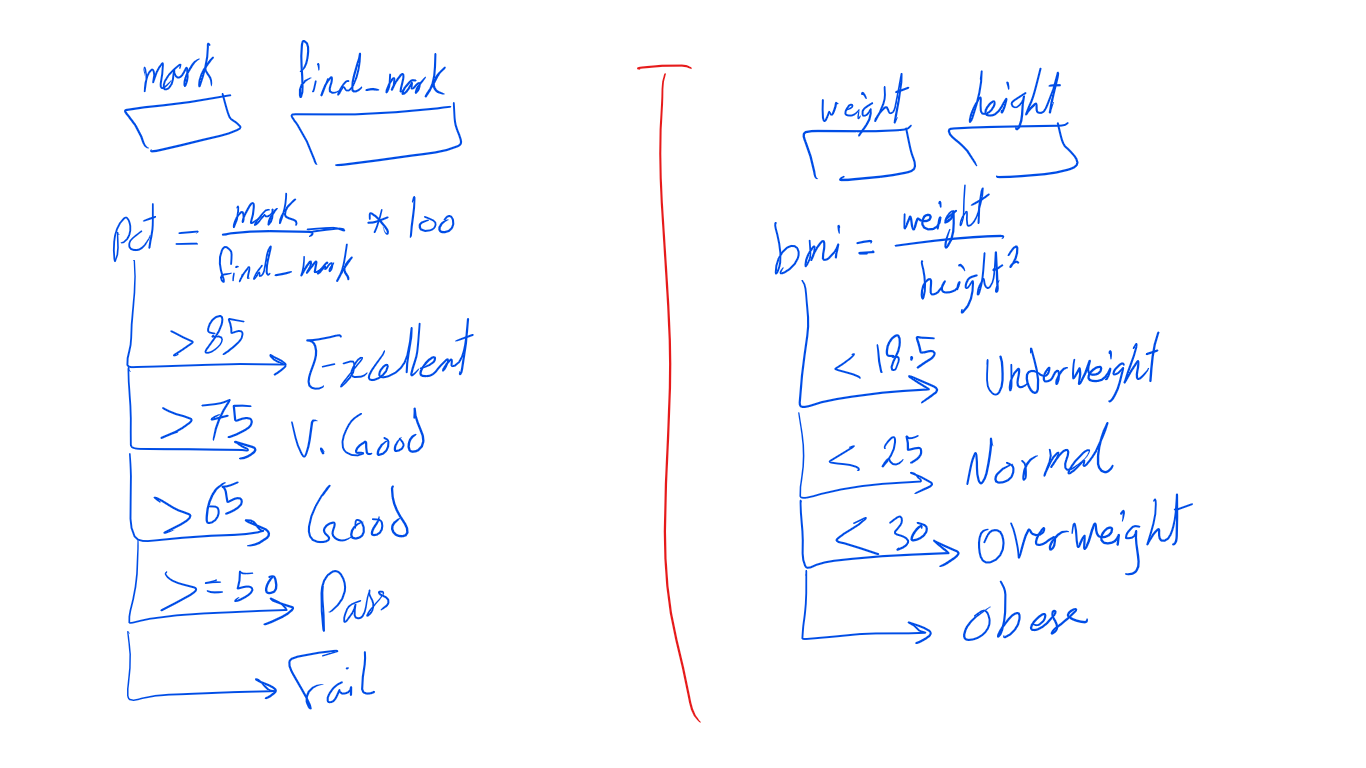 mark final_mark
pct = mark / final_mark * 100
>85 Excellent
>75 V. Good
>65 Good
>=50 Pass
Fail
weight height
bmi = weight / height²
< 18.5 Underweight
< 25 Normal
< 30 Overweight
Obese